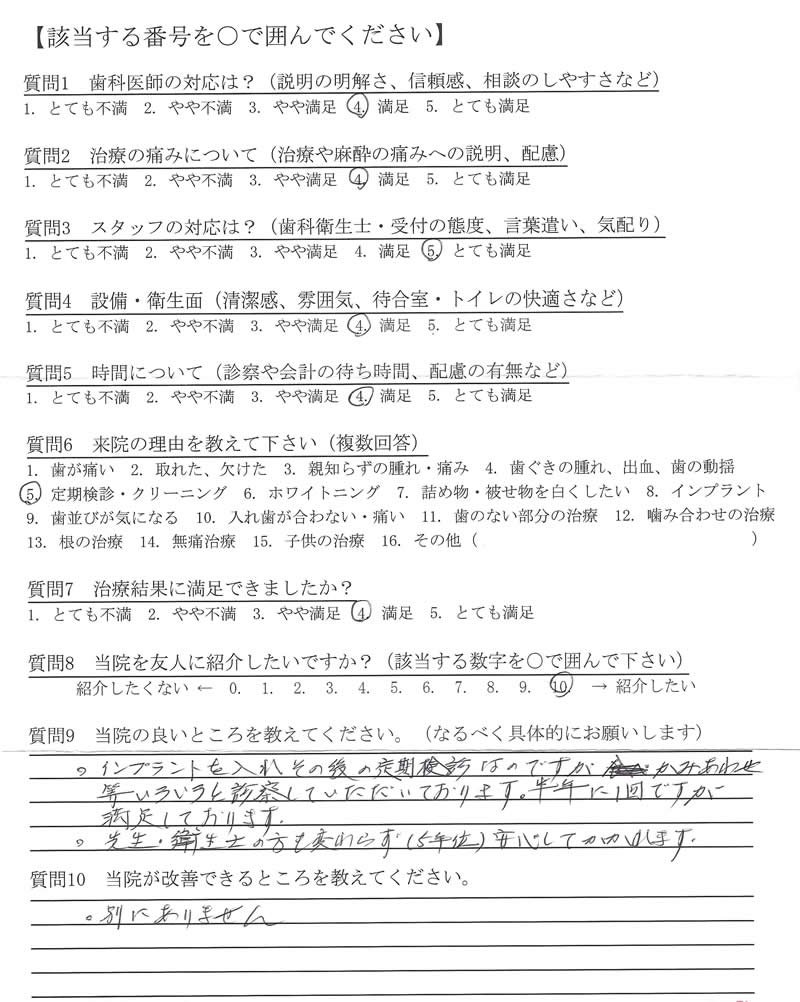 【該当する番号を○で囲んでください】
質問1 歯科医師の対応は？（説明の明解さ、信頼感、相談のしやすさなど）
1. とても不満 2. やや不満 3. やや満足 4. 満足 5. とても満足
質問2 治療の痛みについて（治療や麻酔の痛みへの説明、配慮）
1. とても不満 2. やや不満 3. やや満足 4. 満足 5. とても満足
質問3 スタッフの対応は？（歯科衛生士・受付の態度、言葉遣い、気配り）
1. とても不満 2. やや不満 3. やや満足 4. 満足 5. とても満足
質問4 設備・衛生面（清潔感、雰囲気、待合室・トイレの快適さなど）
1. とても不満 2. やや不満 3. やや満足 4. 満足 5. とても満足
質問5 時間について（診察や会計の待ち時間、配慮の有無など）
1. とても不満 2. やや不満 3. やや満足 4. 満足 5. とても満足
質問6 来院の理由を教えて下さい（複数回答）
1. 歯が痛い 2. 取れた、欠けた 3. 親知らずの腫れ・痛み 4. 歯ぐきの腫れ、出血、歯の動揺
5. 定期検診・クリーニング 6. ホワイトニング 7. 詰め物・被せ物を白くしたい 8. インプラント
9. 歯並びが気になる 10. 入れ歯が合わない・痛い 11. 歯のない部分の治療 12. 噛み合わせの治療
13. 根の治療 14. 無痛治療 15. 子供の治療 16. その他（ ）
質問7 治療結果に満足できましたか？
1. とても不満 2. やや不満 3. やや満足 4. 満足 5. とても満足
質問8 当院を友人に紹介したいですか？（該当する数字を○で囲んで下さい）
紹介したくない ← 0. 1. 2. 3. 4. 5. 6. 7. 8. 9. 10. → 紹介したい
質問9 当院の良いところを教えてください。（なるべく具体的にお願いします）
○インプラントを入れその後の定期検診なのですが かみあわせ
等いろいろと診察していただいております。半年に1回ですが
満足しております.
○先生・衛生士の方も変わらず(5年位)安心してかかれます.
質問10 当院が改善できるところを教えてください。
○別にありません